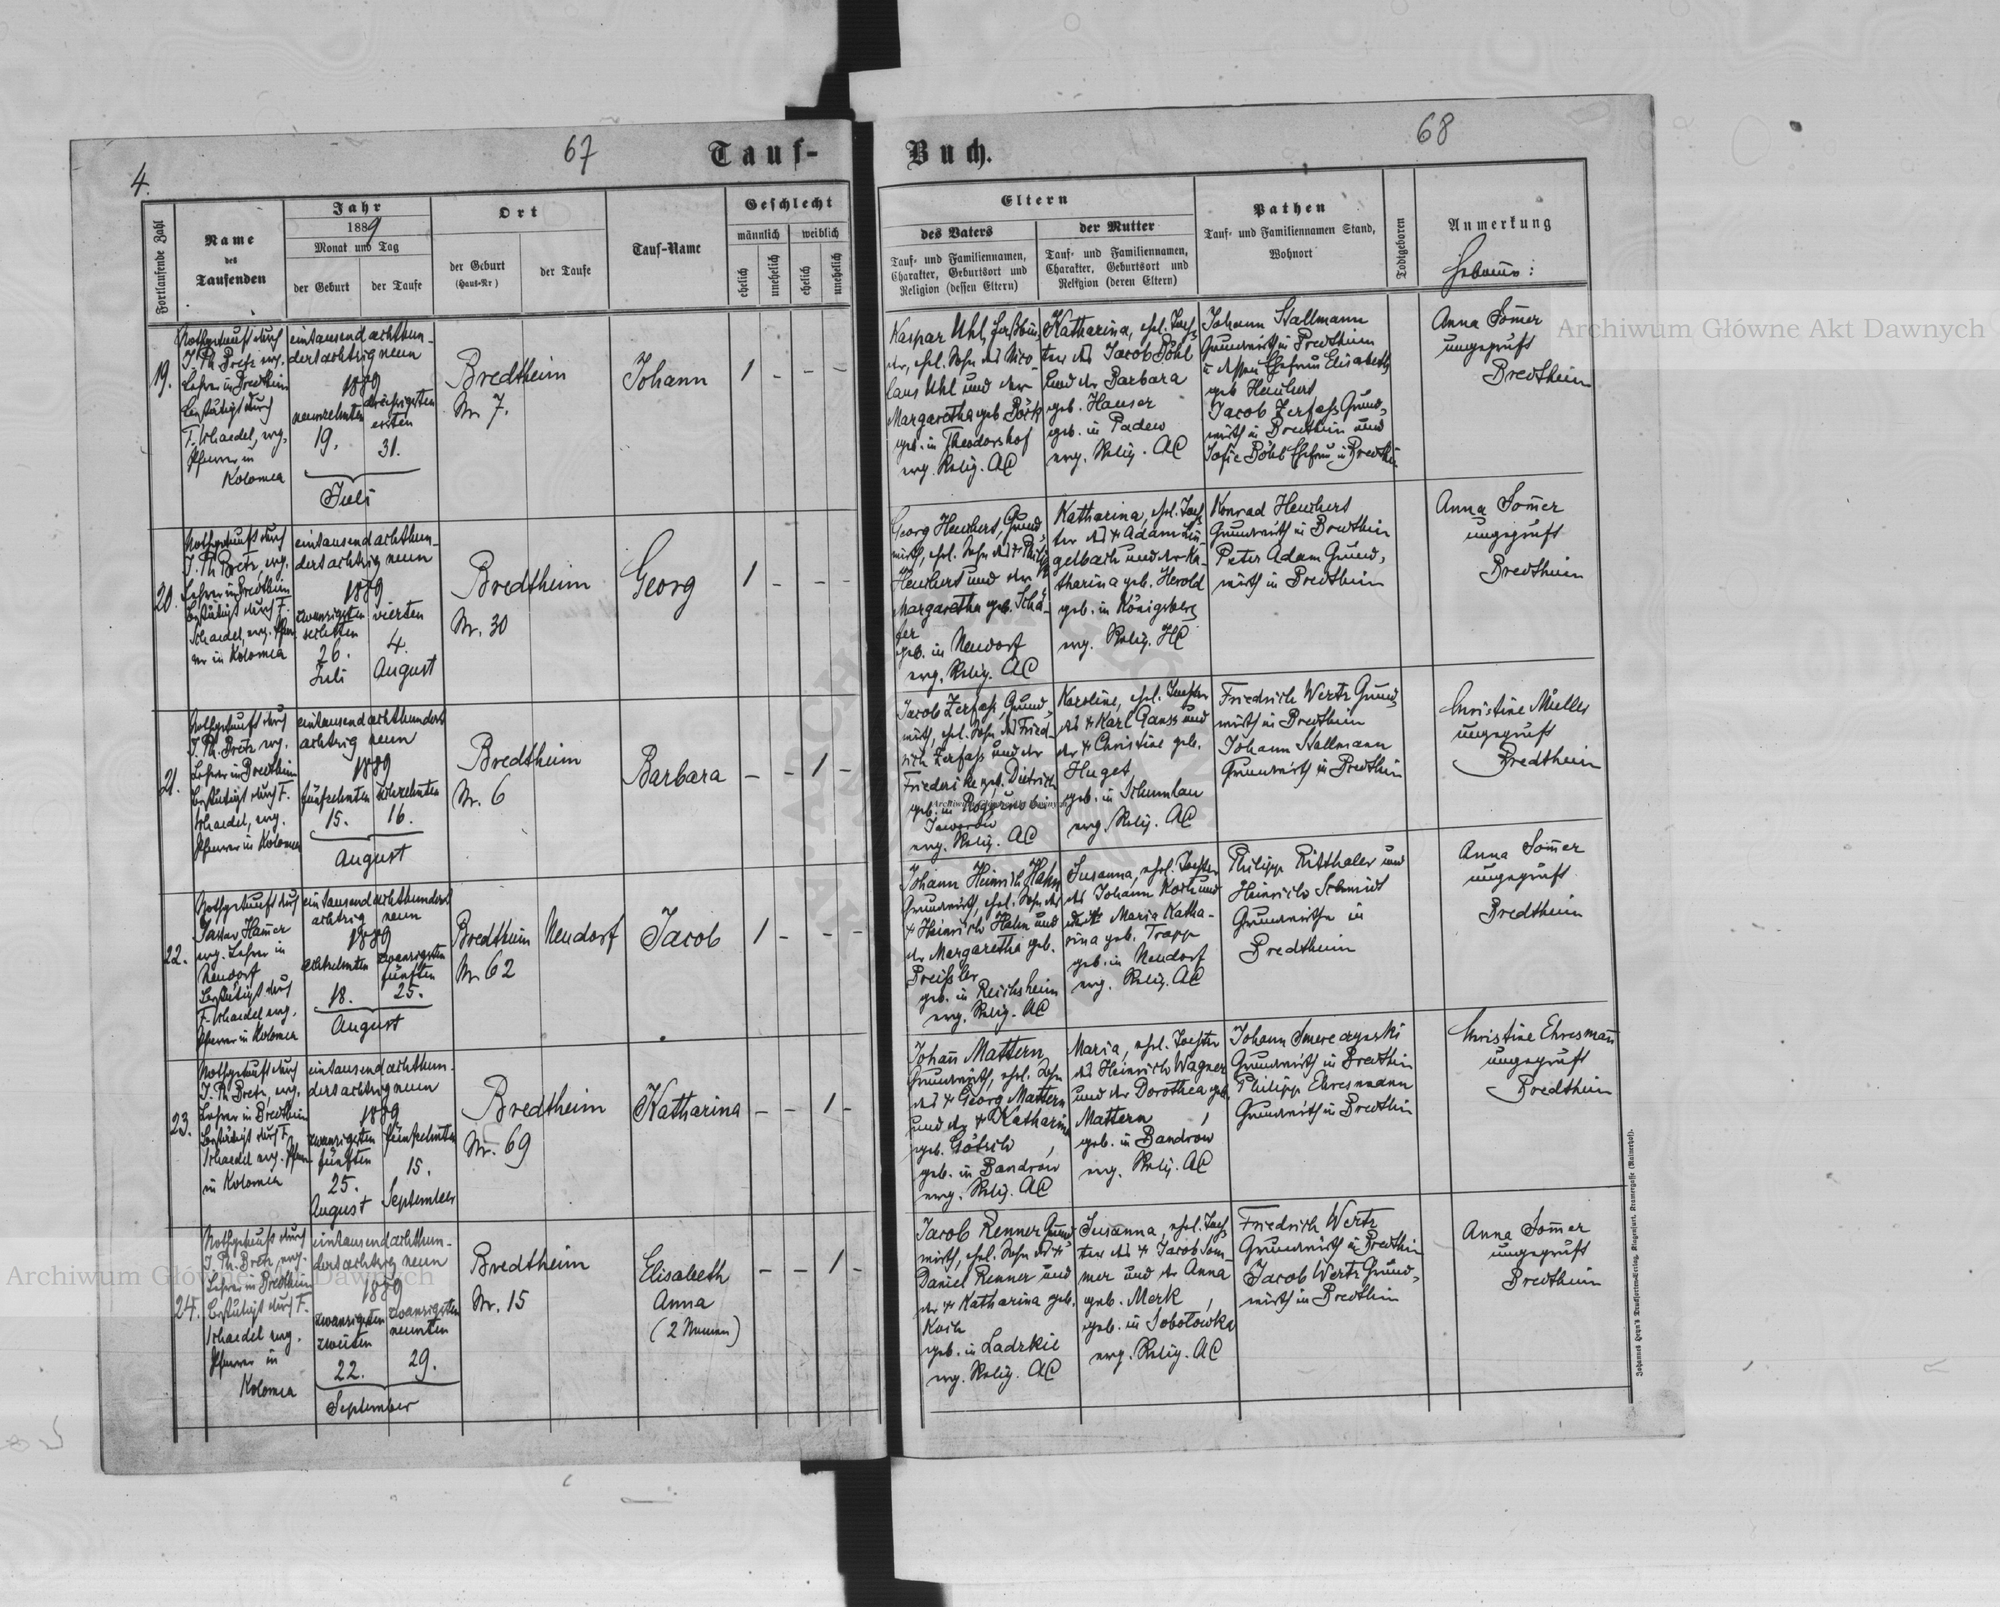 67
Tauf-
4.
Fortlaufende Zahl
Name
des
Taufenden
Jahr
1889
Monat und Tag
der Geburt
der Taufe
Ort
der Geburt
(Haus-Nr)
der Taufe
Tauf-Name
Geschlecht
männlich
weiblich
ehelich
unehelich
ehelich
unehelich
19.
Nothgetauft durch
J. Ph. Bretz, evg.
Lehrer in Bredtheim
bestätigt durch
F. Schaedel, evg.
Pfarrer in
Kolomea
eintausend achthun-
dert achtzig neun
1889
neunzehnten
19.
dreissigsten
ersten
31.
Juli
Bredtheim
Nr. 7.
Johann
1 - - -
20.
Nothgetauft durch
J. Ph. Bretz, evg.
Lehrer in Bredtheim
bestätigt durch F.
Schaedel, evg. Pfar-
rer in Kolomea
eintausend achthun-
dert achtzig neun
1889
zwanzigsten
sechsten
26.
Juli
vierten
4.
August
Bredtheim
Nr. 30
Georg
1 - - -
21.
Nothgetauft durch
J. Ph. Bretz evg.
Lehrer in Bredtheim
bestätigt durch F.
Schaedel, evg.
Pfarrer in Kolomea
eintausend achthundert
achtzig neun
1889
fünfzehnten
15.
sechzehnten
16.
August
Bredtheim
Nr. 6
Barbara
- - 1 -
22.
Nothgetauft durch
evg. Lehrer in
Neudorf
bestätigt durch
F. Schaedel evg.
Pfarrer in Kolomea
eintausend achthundert
achtzig neun
1889
achtzehnten
18.
zwanzigsten
fünften
25.
August
Bredtheim
Nr. 62
Neudorf
Jacob
1 - - -
23.
Nothgetauft durch
J. Ph. Bretz, evg.
Lehrer in Bredtheim
bestätigt durch F.
Schaedel evg. Pfarrer
in Kolomea
eintausend achthun-
dert achtzig neun
1889
zwanzigsten
fünften
25.
August
fünfzehnten
15.
September
Bredtheim
Nr. 69
Katharina
- - 1 -
24.
Nothgetauft durch
J. Ph. Bretz, evg.
Lehrer in Bredtheim
bestätigt durch F.
Schaedel evg.
Pfarrer in
Kolomea
eintausend achthun-
dert achtzig neun
1889
zwanzigsten
zweiten
22.
zwanzigsten
neunten
29.
September
Bredtheim
Nr. 15
Elisabeth
Anna
(2 Namen)
- - 1 -
68
Buch.
Eltern
des Vaters
Tauf- und Familiennamen,
Charakter, Geburtsort und
Religion (dessen Eltern)
der Mutter
Tauf- und Familiennamen,
Charakter, Geburtsort und
Religion (deren Eltern)
Pathen
Tauf- und Familiennamen Stand,
Wohnort
Todtgeboren
Anmerkung
Hebamme:
Kaspar Uhl, Faßbin-
der, ehel. Sohn des Nico-
laus Uhl und der
Margaretha geb. Börk
geb. in Theodorshof
evg. Relig. AC
Katharina, ehel. Toch-
ter des Jacob Pöhl
und der Barbara
geb. Hauser
geb. in Padew
evg. Relig. AC
Johann Stallmann
Grundwirth in Bredtheim
u dessen Ehefrau Elisabeth
geb Heuchert
Jacob Zerfaß Grund-
wirth in Bredtheim und
Sofie Pöhl Ehefrau in Bredtheim
Anna Som̄er
ungeprüft
Bredtheim
Georg Heuchert, Grund-
wirth, ehel. Sohn des + Philip
Heuchert und der
Margaretha geb. Schä-
fer
geb. in Neudorf
evg. Relig. AC
Katharina, ehel. Toch-
ter des + Adam Lin-
gelbach und der Ka-
tharina geb. Herold
geb. in Königsberg
evg. Relig. HC
Konrad Heuchert
Grundwirth in Bredtheim
Peter Adam Grund-
wirth in Bredtheim
Anna Som̄er
ungeprüft
Bredtheim
Jacob Zerfaß, Grund-
wirth, ehel. Sohn des Fried-
rich Zerfaß und der
Friederike geb. Dietrich
Jaworów
evg. Relig. AC
Karoline, ehel. Tochter
des + Karl Ganss und
der + Christine geb.
Huget
geb. in Schumlau
evg. Relig. AC
Friedrich Wertz Grund-
wirth in Bredtheim
Johann Stallmann
Grundwirth in Bredtheim
Christine Müller
ungeprüft
Bredtheim
Johann Heinrich Hahn
Grundwirth, ehel. Sohn des
+ Heinrich Hahn und
der Margaretha geb.
Preißler
geb. in Reichsheim
evg. Relig. AC
Susanna, ehel. Tochter
des Johann Koch und
der + Maria Katha-
rina geb. Trapp
geb. in Neudorf
evg. Relig. AC
Philipp Ritthaler und
Heinrich Schmidt
Grundwirthe in
Bredtheim
Anna Som̄er
ungeprüft
Bredtheim
Johan̄ Mattern
Grundwirth, ehel. Sohn
des + Georg Mattern
und der + Katharina
geb. Götsch
geb. in Bandrow
evg. Relig. AC
Maria, ehel. Tochter
des Heinrich Wagner
und der Dorothea geb.
Mattern
geb. in Bandrow
evg. Relig. AC
Johann Smereczynski
Grundwirth in Bredtheim
Philipp Ehresmann
Grundwirth in Bredtheim
Christine Ehresman̄
ungeprüft
Bredtheim
Jacob Renner Grund-
wirth, ehel. Sohn des +
Daniel Renner und
der + Katharina geb.
Koch
geb. in Ladzkie
evg. Relig. AC
Susanna, ehel. Toch-
ter des + Jacob Som-
mer und der Anna
geb. Merk
geb. in Sobotowka
evg. Relig. AC
Friedrich Wertz
Grundwirth in Bredtheim
Jacob Wertz Grund-
wirth in Bredtheim
Anna Som̄er
ungeprüft
Bredtheim
Archiwum Główne Akt Dawnych
Archiwum Główne Akt Dawnych